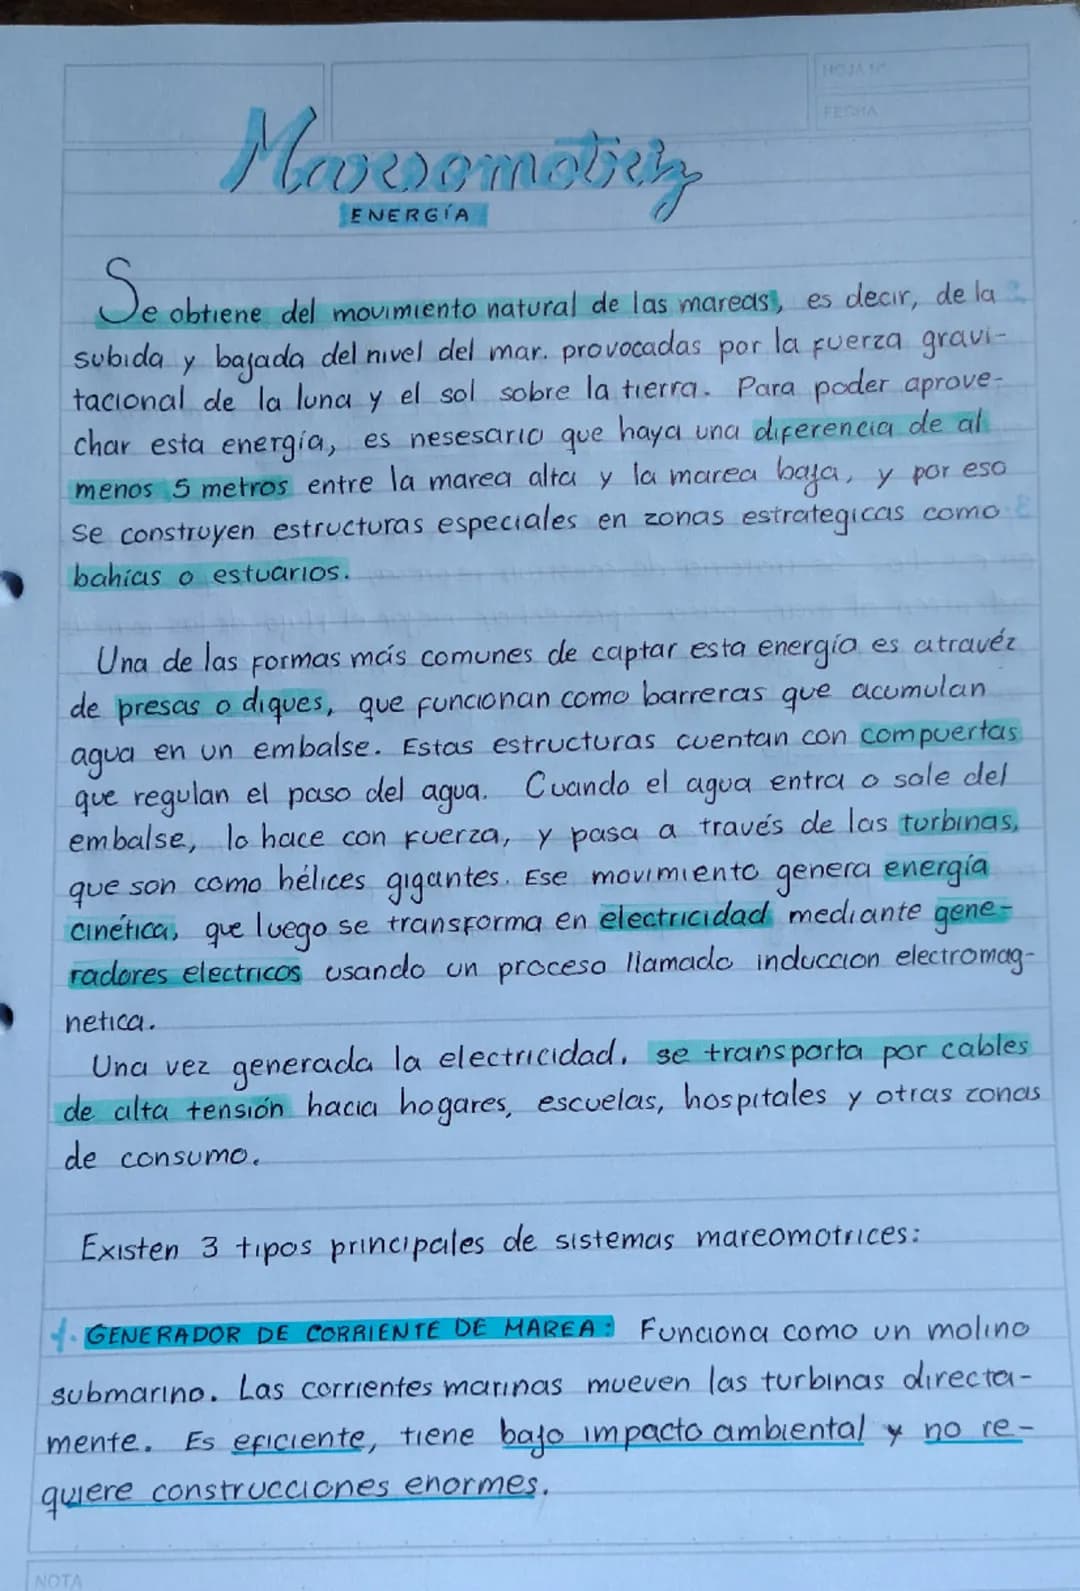 HOJA Nº
FECHA
Mareomotriz
ENERGÍA
Se obtiene del movimiento natural de las mareas, es decir, de la
subida y bajada del nivel del mar. provocadas por la fuerza gravi-
tacional de la luna y el sol sobre la tierra. Para poder aprove-
char esta energía, es nesesario que haya una diferencia de al
menos 5 metros entre la marea alta y la marea baja, y por eso
se construyen estructuras especiales en zonas estrategicas como
bahías o estuarios.
Una de las formas más comunes de captar esta energía es atravéz
de presas o diques, que funcionan como barreras que acumulan
agua en un embalse. Estas estructuras cuentan con compuertas
que regulan el paso del agua. Cuando el agua entra o sale del
embalse, lo hace con fuerza, y pasa a través de las turbinas,
que son como hélices gigantes. Ese movimiento genera energía
cinética, que luego se transforma en electricidad mediante gene-
radores electricos usando un proceso llamado induccion electromag-
netica.
Una vez generada la electricidad, se transporta por cables
de alta tensión hacia hogares, escuelas, hospitales y otras zonas
de consumo.
Existen 3 tipos principales de sistemas mareomotrices:
1. GENERADOR DE CORRIENTE DE MAREA: Funciona como un molino
submarino. Las corrientes marinas mueven las turbinas directa-
mente. Es eficiente, tiene bajo impacto ambiental y no re-
quiere construcciones enormes.
NOTA